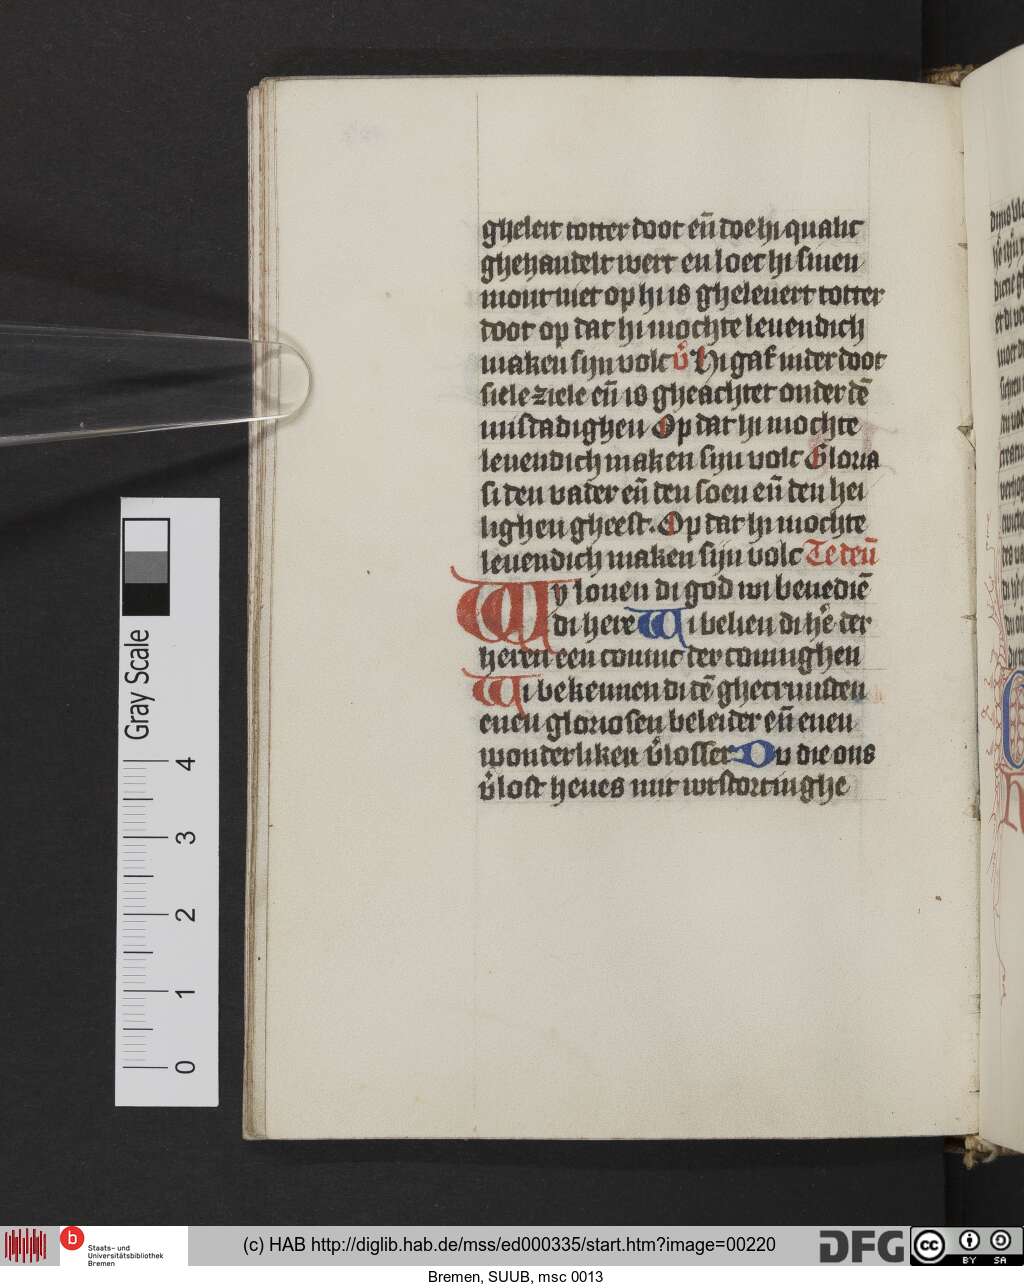 gheleit totter doot en̄ doe hi qualic
ghehandelt wert en loec hi sinen
mont niet op hi is gheleuert totter
doot op dat hi mochte leuendich
maken sijn volc v̊ Hi gaf inder doot
siele ziele en̄ is gheachtet onder dē
misdadighen Op dat hi mochte
leuendich maken sijn volc Gloria
si den vader en̄ den soen en̄ den hei
lighen gheest. Op dat hi mochte
leuendich maken sijn volc Te deū
Wy louen di god wi benediē
di here Wi belien di he͛ der
heren een coninc der coninghen
Wi bekennen di dē ghetruusten
enen gloriosen beleider en̄ enen
wonderliken v͛losser Du die ons
v͛lost heues mit wtstortinghe
Gray Scale
4
3
2
1
0
b
Staats- und
Universitätsbibliothek
Bremen
(c) HAB http://diglib.hab.de/mss/ed000335/start.htm?image=00220
DFG
cc
BY SA
Bremen, SUUB, msc 0013